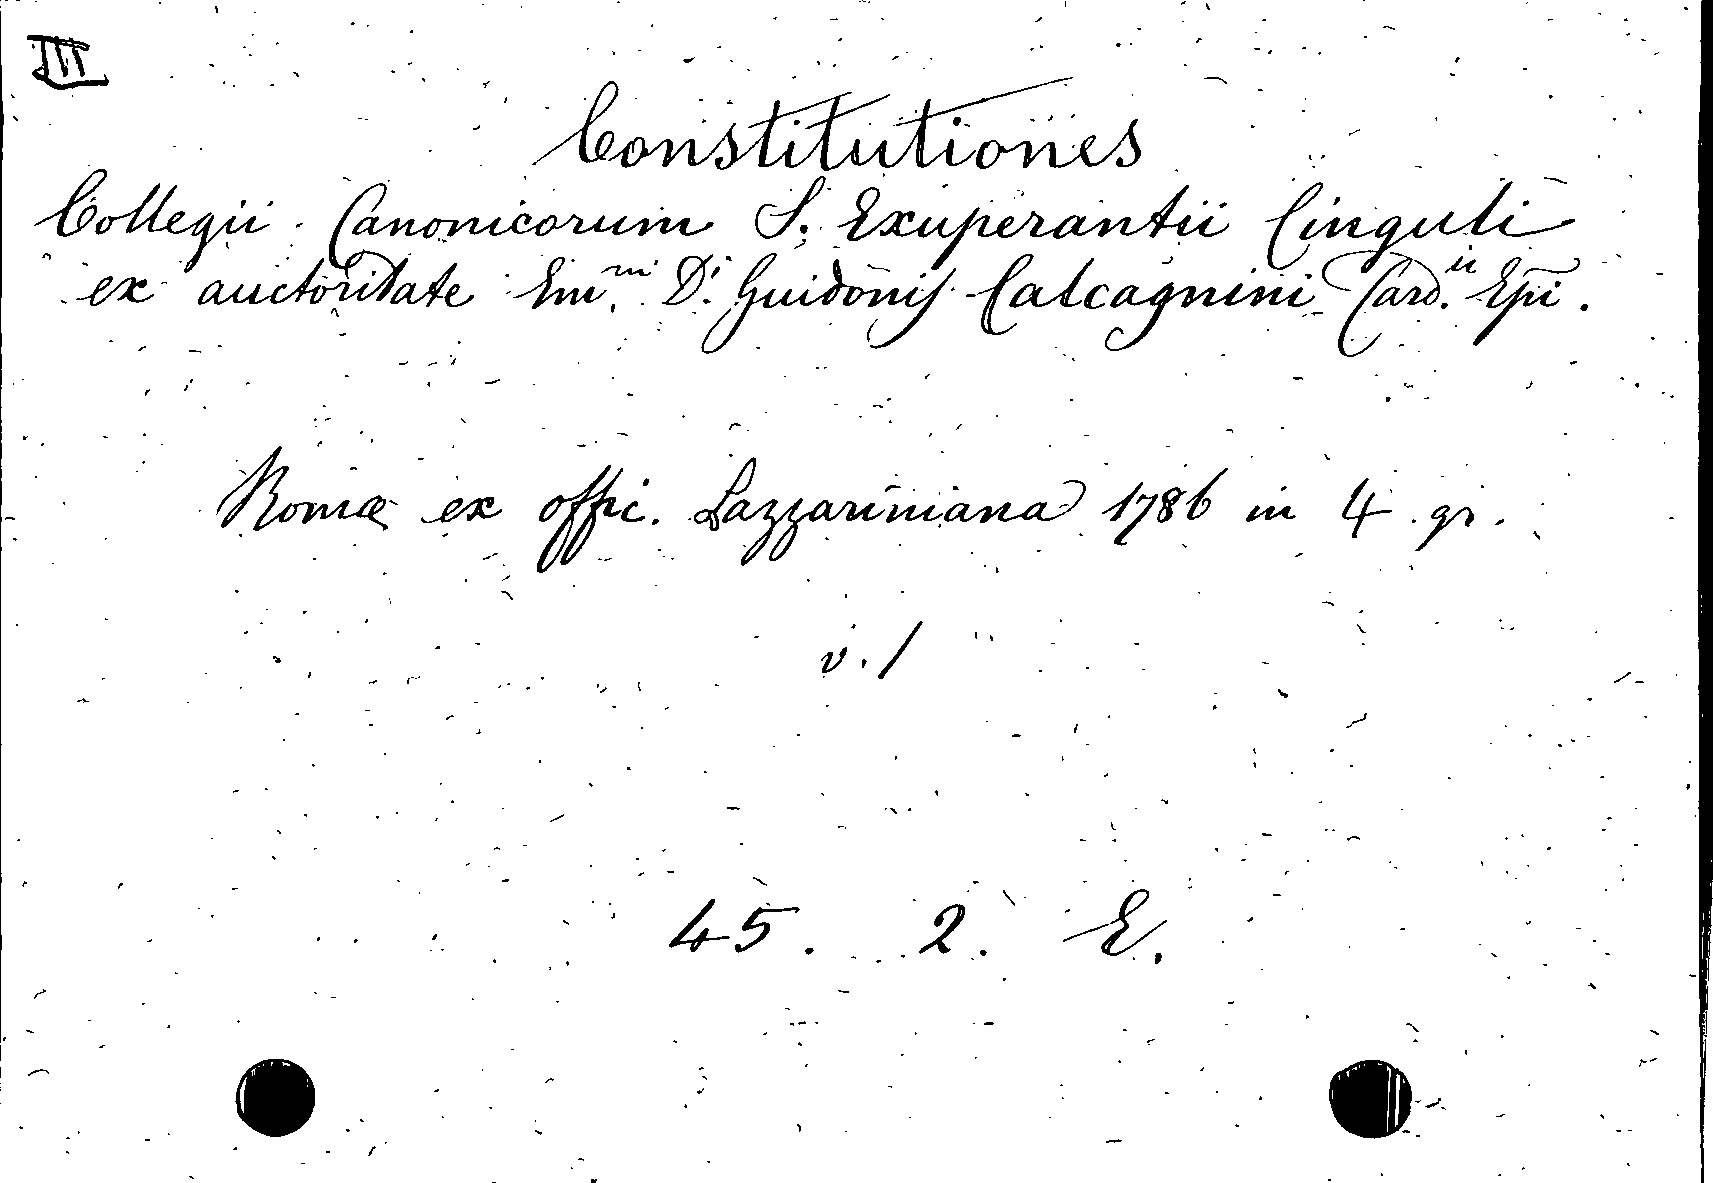 III
Constitutiones
Collegii Canonicorum S. Exuperantii Cinguli
ex auctoritate Em.mi D.i Guidonis Calcagnini Card.ii Epi.
Romæ ex offic. Lazzariniana 1786 in 4 gr.
v. 1
45. 2. E.